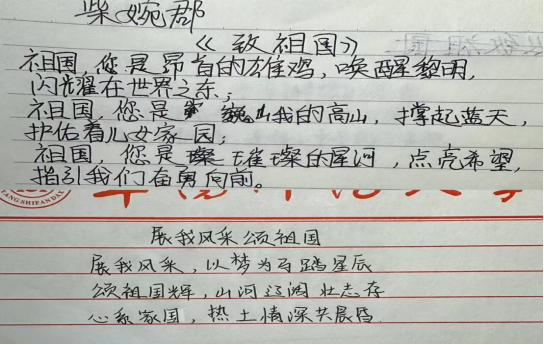 柴婉郡
《致祖国》
祖国,您是昂首的雄鸡,唤醒黎明,
闪耀在世界之东;
祖国,您是巍巍的高山,撑起蓝天,
护佑着儿女家园;
祖国,您是璀璨的星河,点亮希望,
指引我们奋勇向前。
YANG SHIFAN DA
展我风采颂祖国
展我风采,以梦为马踏星辰
颂祖国辉,山河辽阔壮志存
心系家国,热土情深共晨昏